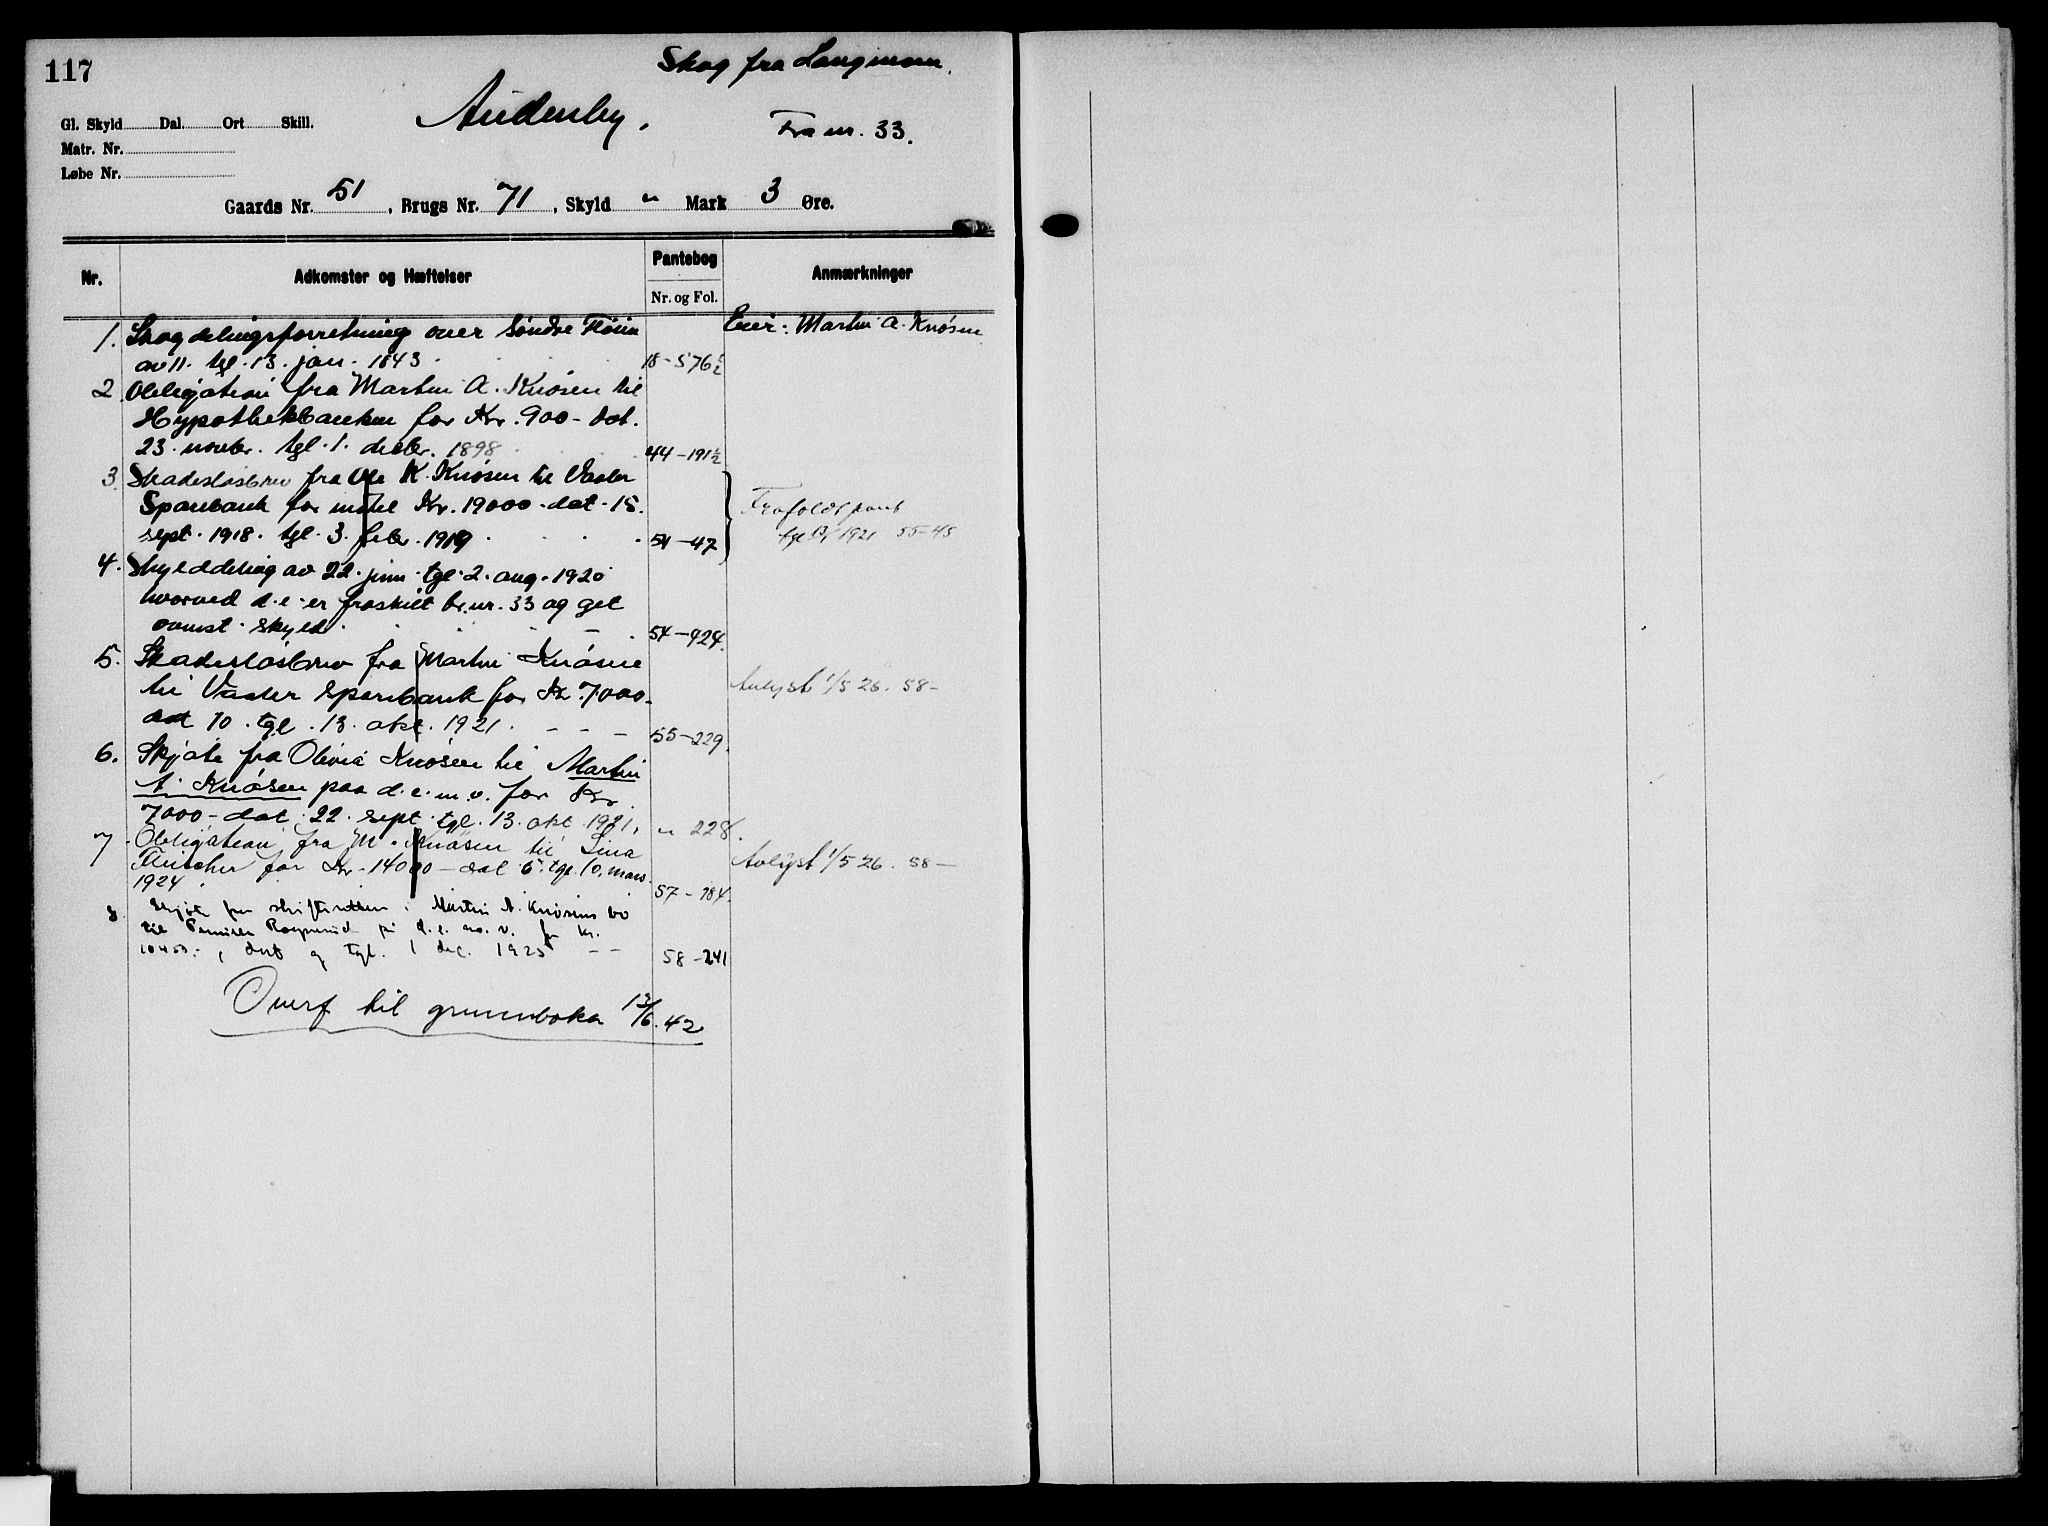 117
Skog fra Langmoen.
Audenby.
Fra nr. 33.
Gl. Skyld Dal. Ort Skill.
Matr. Nr.
Løbe Nr.
Gaards Nr. 51, Brugs Nr. 71, Skyld " Mark 3 Øre.
Nr. Adkomster og Hæftelser Pantebog Anmærkninger
Nr. og Fol.
1. Skogdelingsforretning over Søndre Eier: Martin A. Knøsen
av 11. tgl. 13. jan. 1843 18-576½
2. Obligation fra Martin A. Knøsen til
Hypothekbanken for Kr. 900- dat.
23. novbr. tgl. 1. decbr. 1898 44-191½
3. Skadesløsbrev fra Ole K. Knøsen til Vaaler
Sparebank for indtil Kr. 19000- dat. 15. Frafaldt pant
sept. 1918. tgl. 3. febr. 1919 54-47 tgl 1921 55-45
4. Skylddeling av 22. juni tgl. 2. aug. 1920
hvorved d.e. er fraskilt br.nr. 33 og git
ovenst. skyld. 54-424.
5. Skadesløsbrev fra Martin Knøsen
til Vaaler Sparebank for Kr. 7000- Avlyst 1/5 26. 58-
dat 10. tgl. 13. okt. 1921. 55-229.
6. Skjøte fra Olivia Knøsen til Martin
A. Knøsen paa d.e.m.v. for Kr.
7000- dat. 22. sept. tgl. 13. okt. 1921. " 228.
7. Obligation fra M. Knøsen til Lina
for Kr. 14000- dat. 5. tgl. 10. mars Avlyst 1/5 26. 58-
1924. 57-184.
8. Skjøte fra skifteretten i Martin A. Knøsens bo
til på d.e.m.v. for Kr.
, dat og tgl. 1 dec. 1925 58-241
Overf til grunnboka 13/6.42